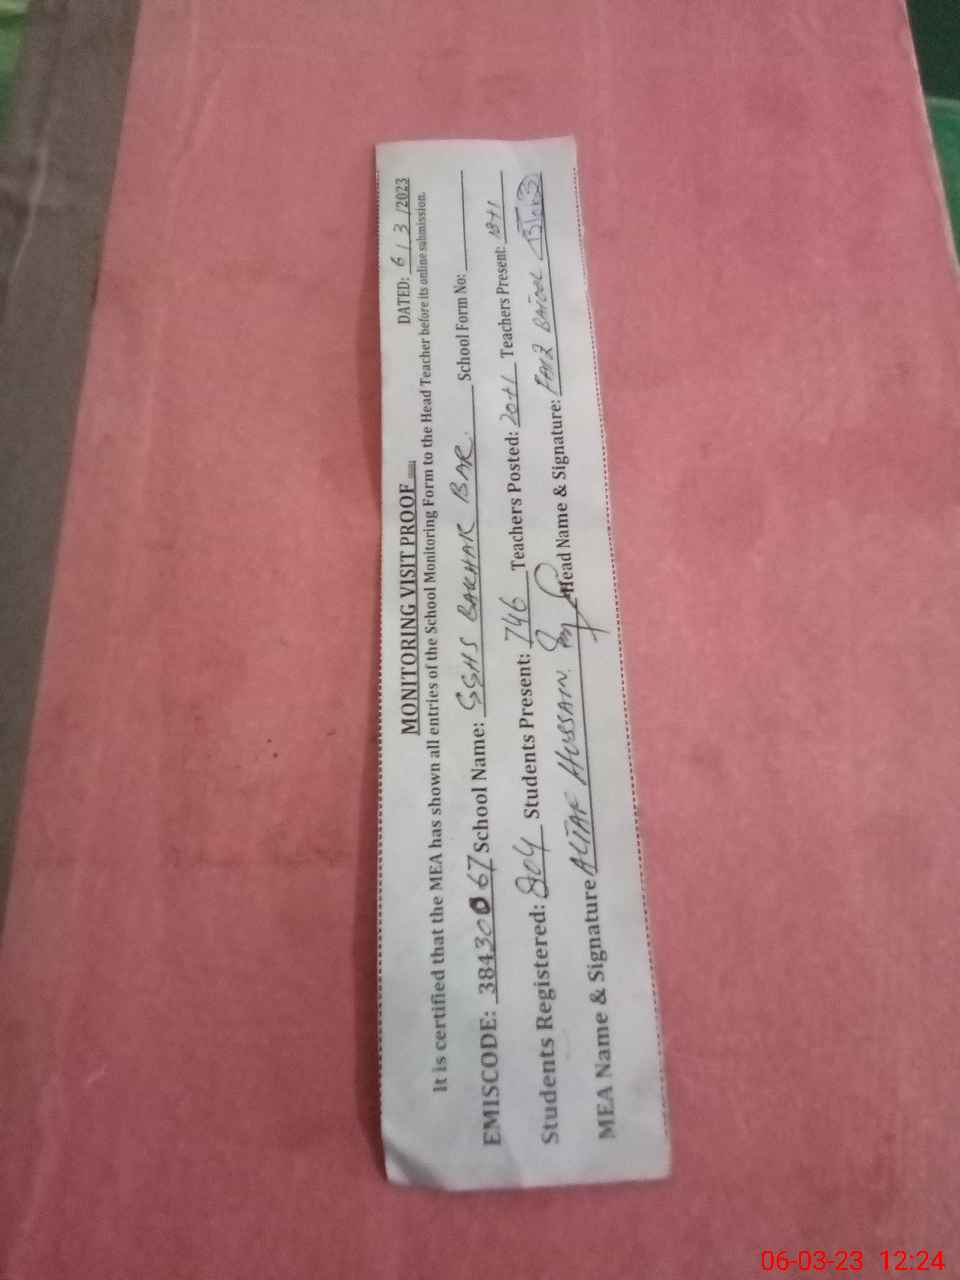 MONITORING VISIT PROOF DATED: 6/3/2023
It is certified that the MEA has shown all entries of the School Monitoring Form to the Head Teacher before its online submission.
EMISCODE: 38430067 School Name: GGHS BAKHAR BAR. School Form No:
Students Registered: 804 Students Present: 746 Teachers Posted: 20+1 Teachers Present: 18+1
MEA Name & Signature ALTAF HUSSAIN. Head Name & Signature:
06-03-23 12:24